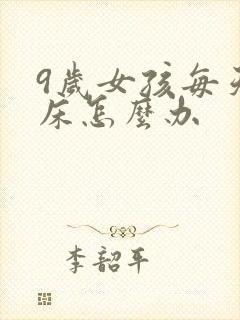 9歲女孩每天
床怎麼办
李韶平